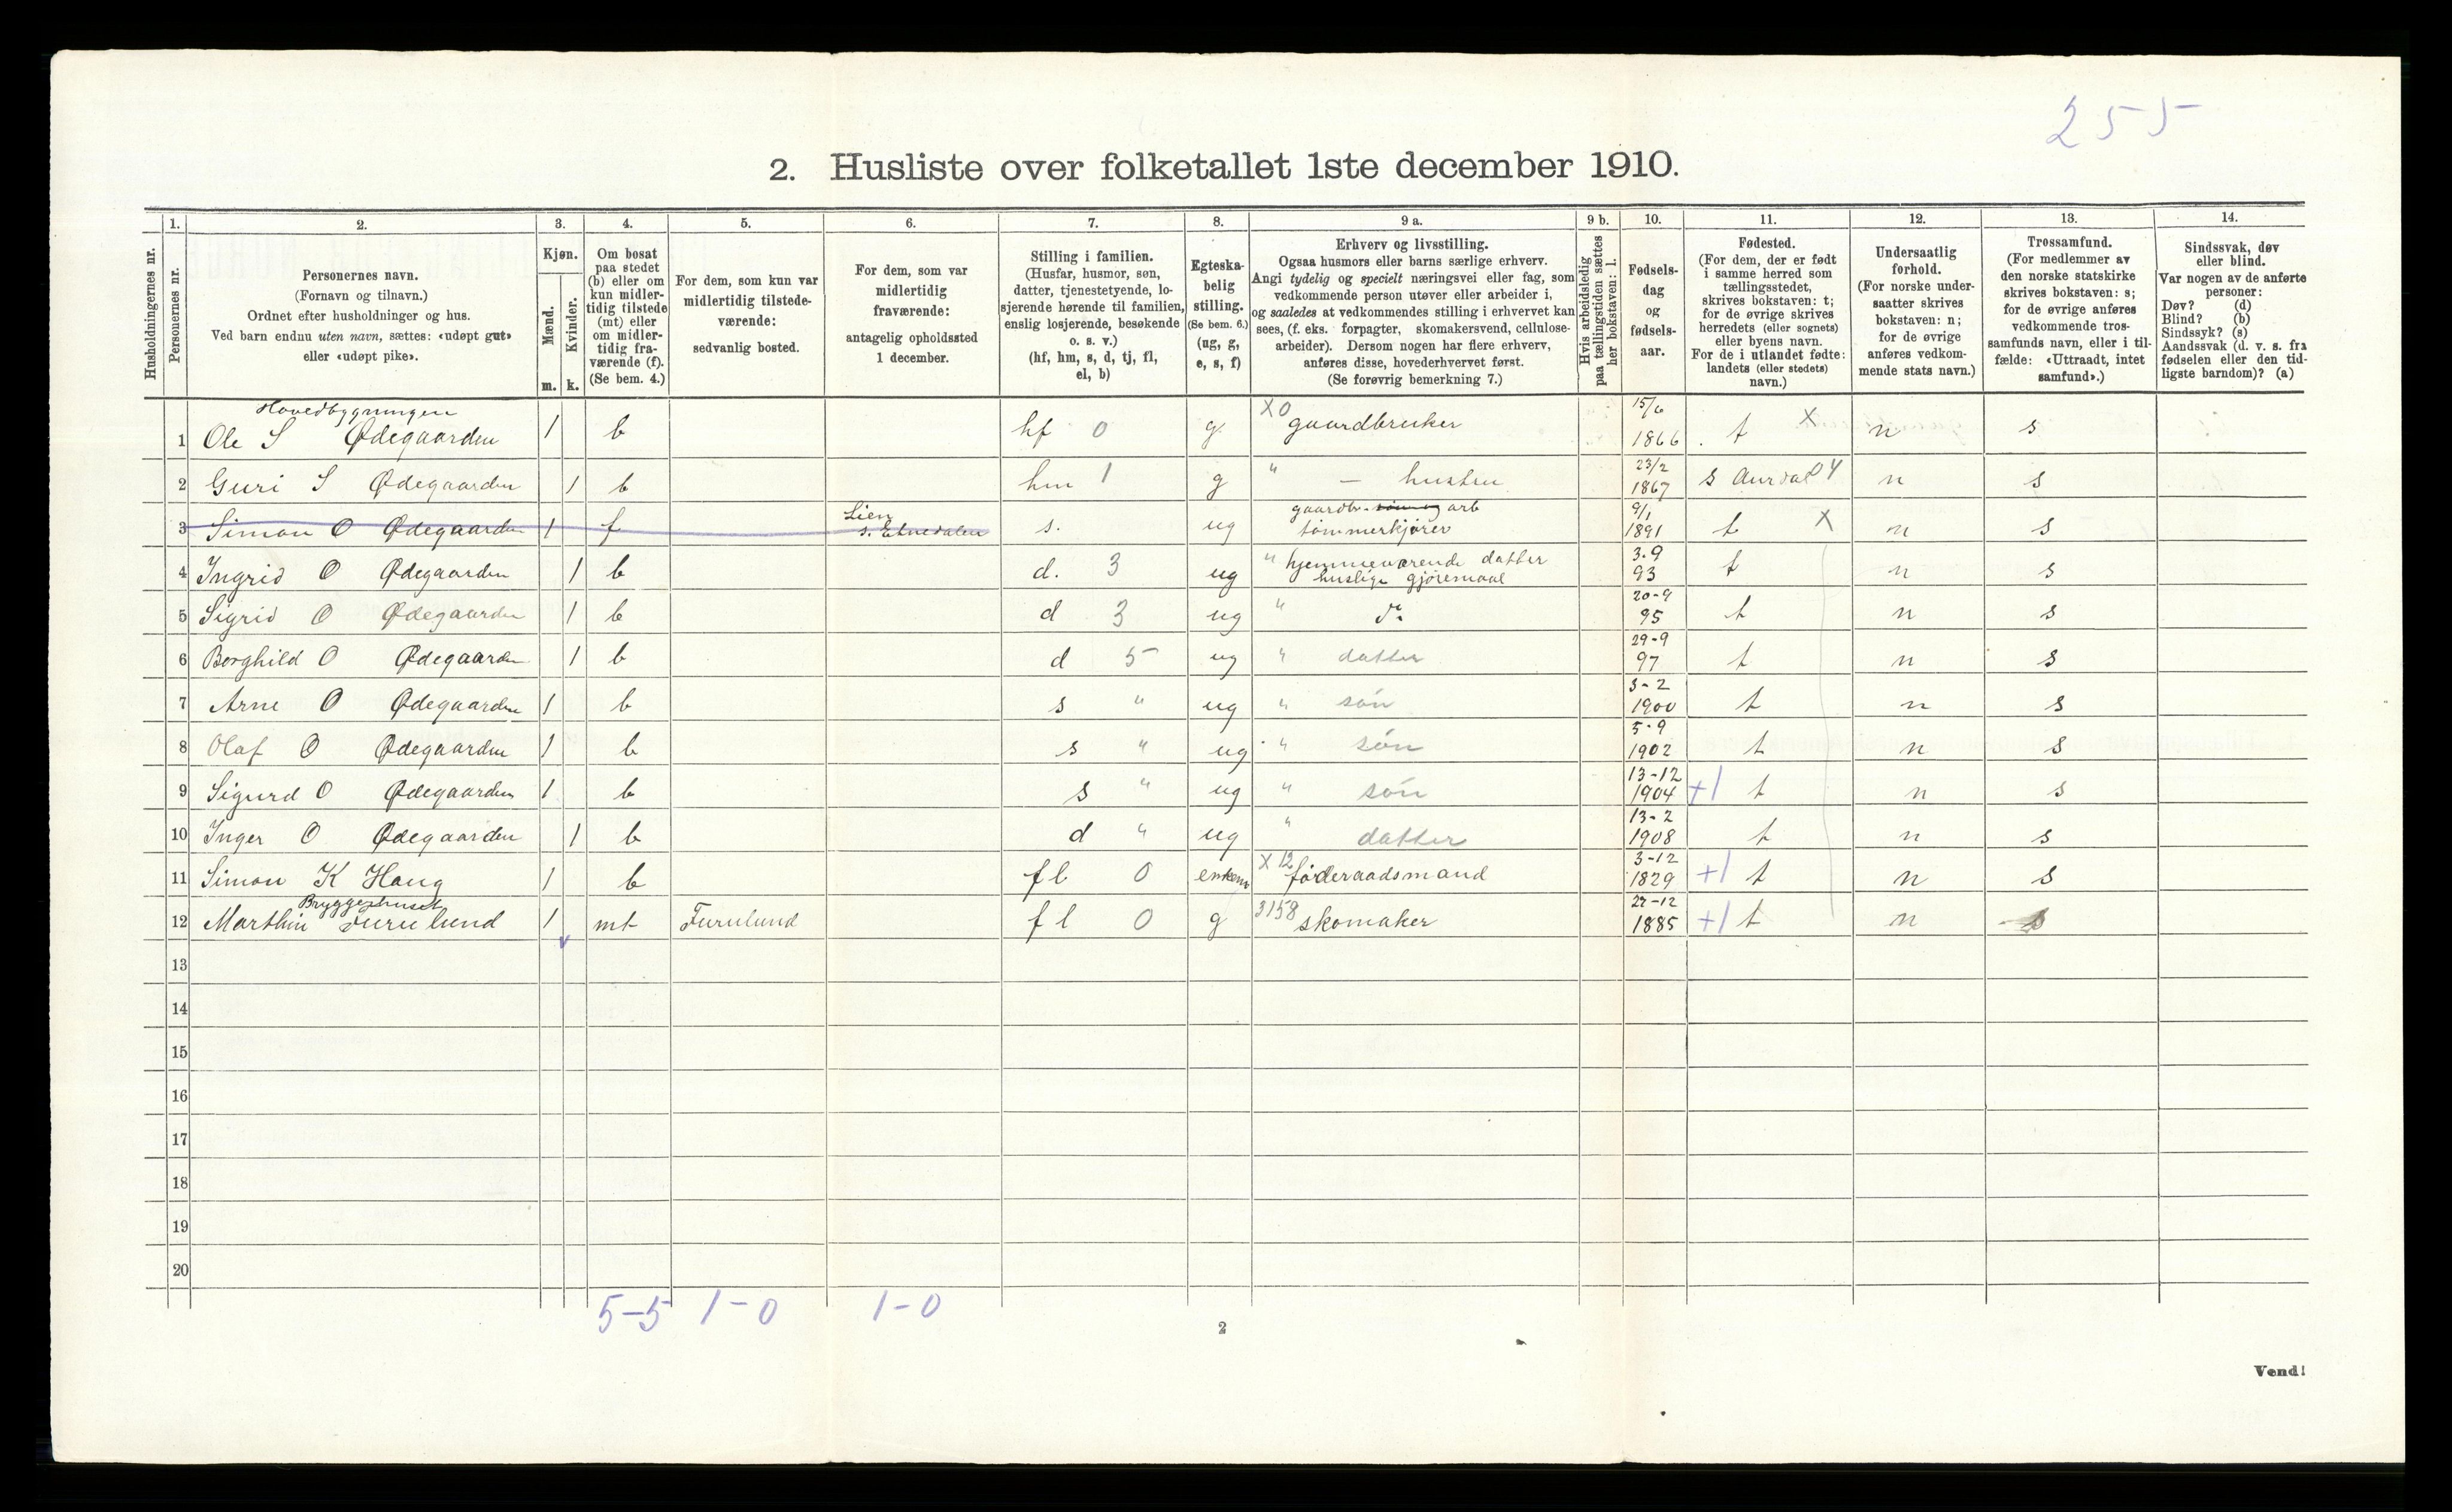 255
2. Husliste over folketallet 1ste december 1910.
Husholdningernes nr.
1. Personernes nr.
2. Personernes navn. (Fornavn og tilnavn.) Ordnet efter husholdninger og hus. Ved barn endnu uten navn, sættes: «udøpt gut» eller «udøpt pike».
3. Kjøn. Mænd. m. Kvinder. k.
4. Om bosat paa stedet (b) eller om kun midlertidig tilstede (mt) eller om midlertidig fraværende (f). (Se bem. 4.)
5. For dem, som kun var midlertidig tilstedeværende: sedvanlig bosted.
6. For dem, som var midlertidig fraværende: antagelig opholdssted 1 december.
7. Stilling i familien. (Husfar, husmor, søn, datter, tjenestetyende, losjerende hørende til familien, enslig losjerende, besøkende o. s. v.) (hf, hm, s, d, tj, fl, el, b)
8. Egteskabelig stilling. (Se bem. 6.) (ug, g, e, s, f)
9 a. Erhverv og livsstilling. Ogsaa husmors eller barns særlige erhverv. Angi tydelig og specielt næringsvei eller fag, som vedkommende person utøver eller arbeider i, og saaledes at vedkommendes stilling i erhvervet kan sees, (f. eks. forpagter, skomakersvend, cellulosearbeider). Dersom nogen har flere erhverv, anføres disse, hovederhvervet først. (Se forøvrig bemerkning 7.)
9 b. Hvis arbeidsledig paa tællingstiden sættes her bokstaven: l.
10. Fødselsdag og fødselsaar.
11. Fødested. (For dem, der er født i samme herred som tællingsstedet, skrives bokstaven: t; for de øvrige skrives herredets (eller sognets) eller byens navn. For de i utlandet fødte: landets (eller stedets) navn.)
12. Undersaatlig forhold. (For norske undersaatter skrives bokstaven: n; for de øvrige anføres vedkommende stats navn.)
13. Trossamfund. (For medlemmer av den norske statskirke skrives bokstaven: s; for de øvrige anføres vedkommende trossamfunds navn, eller i tilfælde: «Uttraadt, intet samfund».)
14. Sindssvak, døv eller blind. Var nogen av de anførte personer: Døv? (d) Blind? (b) Sindssyk? (s) Aandssvak (d. v. s. fra fødselen eller den tidligste barndom)? (a)
Hovedbygningen
1 Ole S Ødegaarden 1 b hf 0 g X0 gaardbruker 15/6 1866 t X n s
2 Guri S Ødegaarden 1 b hm 1 g " — hustru 23/2 1867 s Aurdal 04 n s
3 Simon O Ødegaarden 1 f Lien s. Etnedalen s. ug gaardbr. søn og arb tømmerkjører 9/1 1891 t X n s
4 Ingrid O Ødegaarden 1 b d. 3 ug " hjemmeværende datter huslige gjøremaal 3.9 93 t n s
5 Sigrid O Ødegaarden 1 b d 3 ug " do 20-9 95 t n s
6 Borghild O Ødegaarden 1 b d 5 ug " datter 29-9 97 t n s
7 Arne O Ødegaarden 1 b s " ug " søn 3-2 1900 t n s
8 Olaf O Ødegaarden 1 b s " ug " søn 5-9 1902 t n s
9 Sigurd O Ødegaarden 1 b s " ug " søn 13-12 1904 +1 t n s
10 Inger O Ødegaarden 1 b d " ug " datter 13-2 1908 t n s
11 Simon K Haug 1 b fl 0 enkem X 12 føderaadsmand 3-12 1829 +1 t n s
Bryggerhuset
12 Marthin Furulund 1 mt Furulund fl 0 g 3158 skomaker 27-12 1885 +1 t n s
13
14
15
16
17
18
19
20
5-5 1-0 1-0
2
Vend!